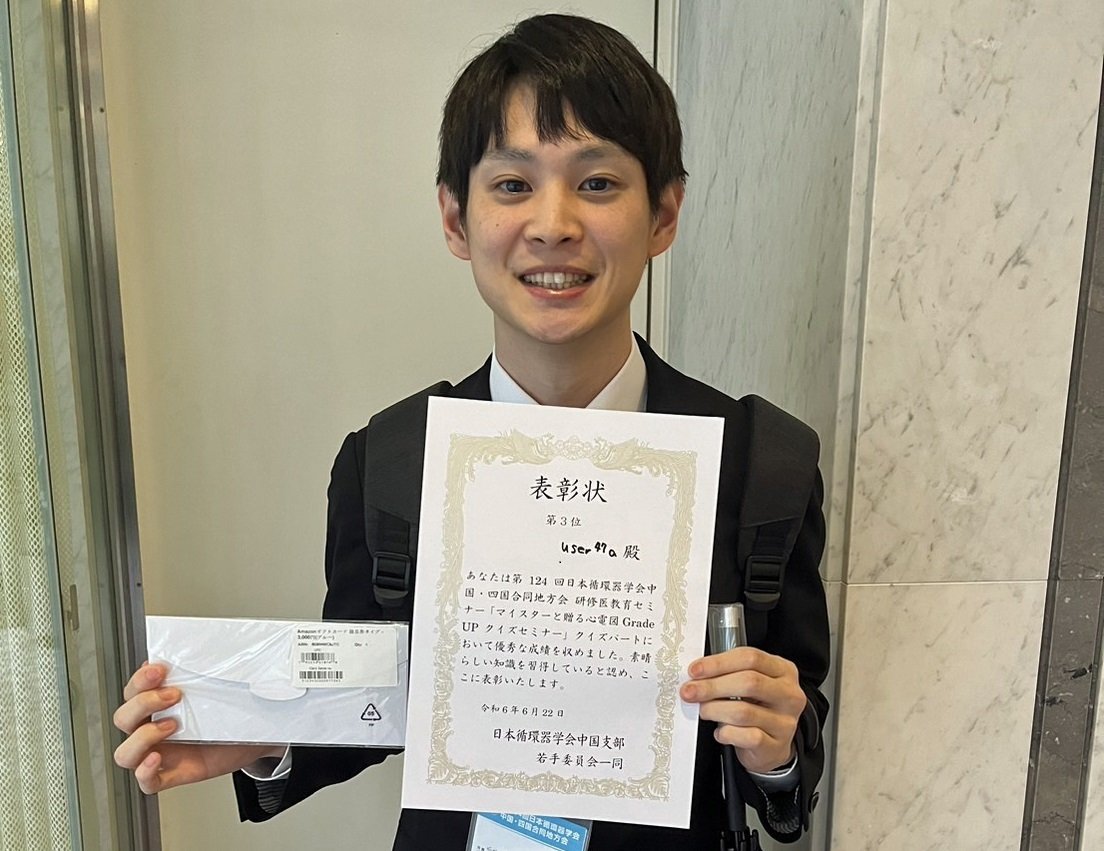 表彰状
第3位
user47a 殿
あなたは第 124 回日本循環器学会中
国・四国合同地方会 研修医教育セミ
ナー「マイスターと贈る心電図 Grade
UP クイズセミナー」クイズパートに
おいて優秀な成績を収めました。素晴
らしい知識を習得していると認め、こ
こに表彰いたします。
令和6年6月22日
日本循環器学会中国支部
若手委員会一同
Amazonギフトカード
回日本循環器学会
中国・四国合同地方会